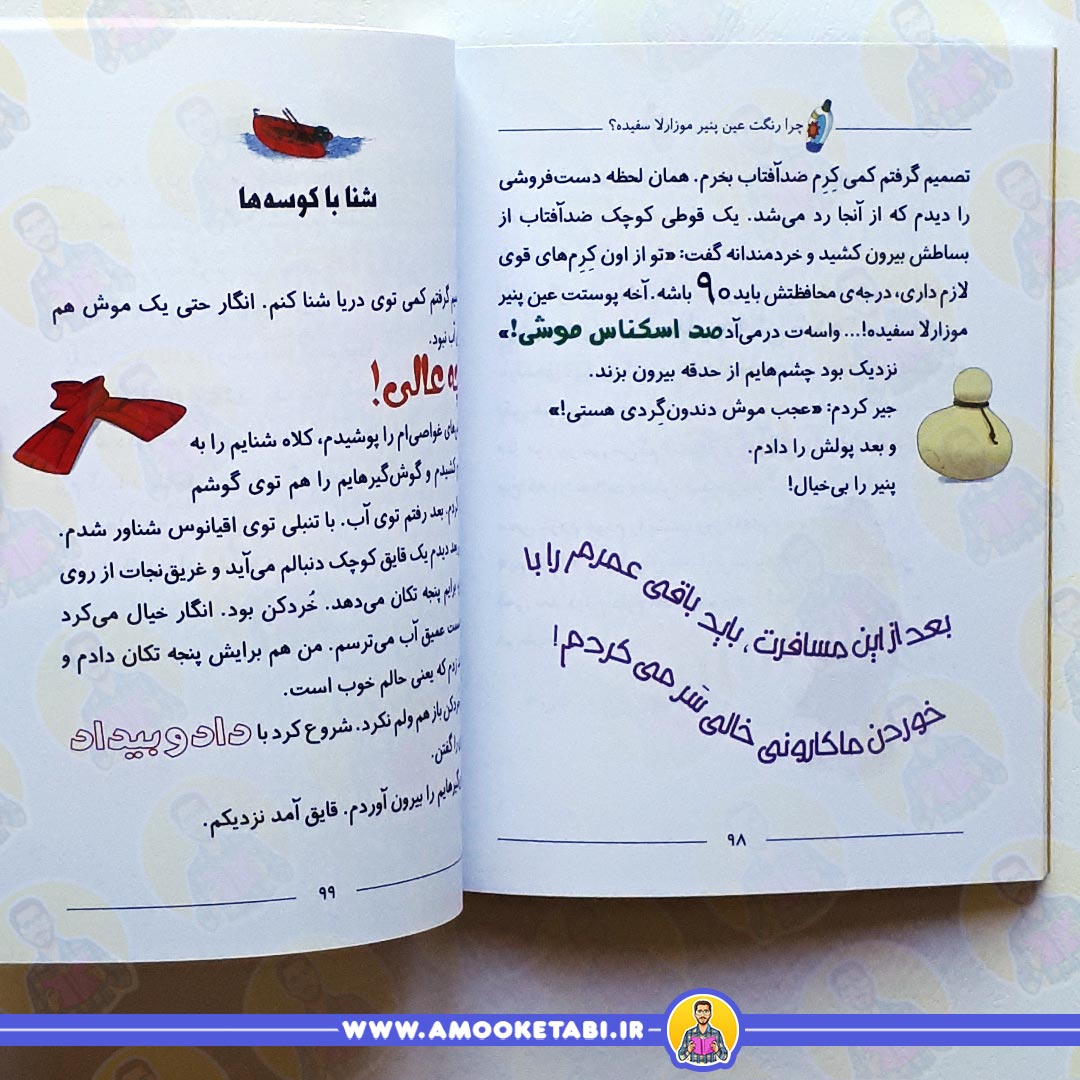 چرا رنگت عین پنیر موزارلا سفیده؟
تصمیم گرفتم کمی کِرِم ضدآفتاب بخرم. همان لحظه دست‌فروشی
را دیدم که از آنجا رد می‌شد. یک قوطی کوچک ضدآفتاب از
بساطش بیرون کشید و خردمندانه گفت: «تو از اون کِرِم‌های قوی
لازم داری، درجه‌ی محافظتش باید ۹۰ باشه. آخه پوستت عین پنیر
موزارلا سفیده!... واسه‌ت درمی‌آد صد اسکناس موشی!»
نزدیک بود چشم‌هایم از حدقه بیرون بزند.
جیر کردم: «عجب موش دندون‌گِردی هستی!»
و بعد پولش را دادم.
پنیر را بی‌خیال!
بعد از این مسافرت، باید باقی عمرم را با
خوردن ماکارونی خالی سَر می‌کردم!
۹۸
شنا با کوسه‌ها
گرفتم کمی توی دریا شنا کنم. انگار حتی یک موش هم
آب نبود.
عالی!
غواصی‌ام را پوشیدم، کلاه شنایم را به
کشیدم و گوش‌گیرهایم را هم توی گوشم
بعد رفتم توی آب. با تنبلی توی اقیانوس شناور شدم.
دیدم یک قایق کوچک دنبالم می‌آید و غریق‌نجات از روی
برایم پنجه تکان می‌دهد. خُردکن بود. انگار خیال می‌کرد
عمیق آب می‌ترسم. من هم برایش پنجه تکان دادم و
که یعنی حالم خوب است.
باز هم ولم نکرد. شروع کرد با داد و بیداد
گفتن.
را بیرون آوردم. قایق آمد نزدیکم.
۹۹
WWW.AMOOKETABI.IR